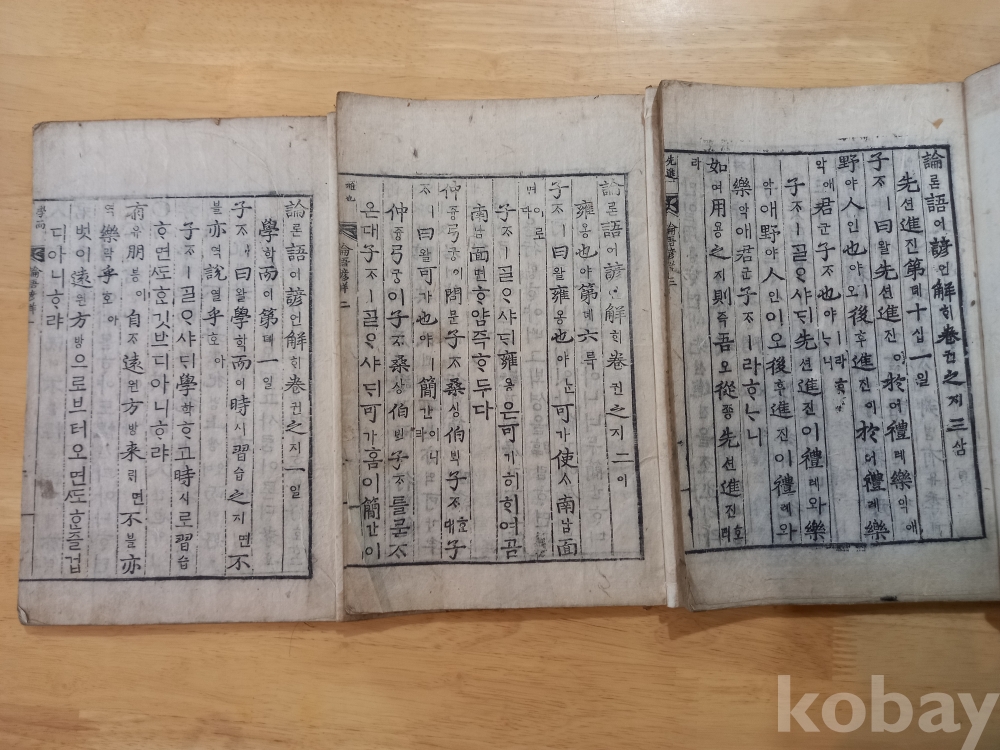 論론語어諺언解ᄒᆡ卷권之지一일
學학而이第뎨一일
子ᄌᆞㅣ曰왈學학而이時시習습之지면不
블亦역說열乎호아
子ᄌᆞㅣᄀᆞᆯᄋᆞ샤ᄃᆡ學학ᄒᆞ고時시로習습
ᄒᆞ면ᄯᅩ호깃브디아니ᄒᆞ랴
有유朋붕이自ᄌᆞ遠원方방來ᄅᆡ면不블亦
역樂락乎호아
벗이遠원方방으로브터오면ᄯᅩᄒᆞᆫ즐겁
디아니ᄒᆞ랴
學而 論語諺解 一
論론語어諺언解ᄒᆡ卷권之지二이
雍옹也야第뎨六륙
子ᄌᆞㅣ曰왈雍옹也야ᄂᆞᆫ可가使ᄉᆞ南남面
면이로다
子ᄌᆞㅣᄀᆞᆯᄋᆞ샤ᄃᆡ雍옹은可가히ᄒᆞ여곰
南남面면ᄒᆞ얌즉ᄒᆞ두다
仲듕弓궁이問문子ᄌᆞ桑상伯ᄇᆡᆨ子ᄌᆞᄒᆞᆫ대子
ᄌᆞㅣ曰왈可가也야ㅣ簡간이니라
仲듕弓궁이子ᄌᆞ桑상伯ᄇᆡᆨ子ᄌᆞ를문ᄌᆞ
온대子ᄌᆞㅣᄀᆞᆯᄋᆞ샤ᄃᆡ可가홈이簡간이
雍也 論語諺解 二
論론語어諺언解ᄒᆡ卷권之지三삼
先션進진第뎨十십一일
子ᄌᆞㅣ曰왈先션進진이於어禮례樂악애
野야人인也야ㅣ오後후進진이於어禮례樂
악애君군子ᄌᆞ也야ㅣ라ᄒᆞᄂᆞ니
子ᄌᆞㅣᄀᆞᆯᄋᆞ샤ᄃᆡ先션進진이禮례와樂
악애野야人인이오後후進진이禮례와
樂악애君군子ᄌᆞㅣ라ᄒᆞᄂᆞ니
如여用용之지則즉吾오從죵先션進진호리
라
先進 論語諺解 三
kobay